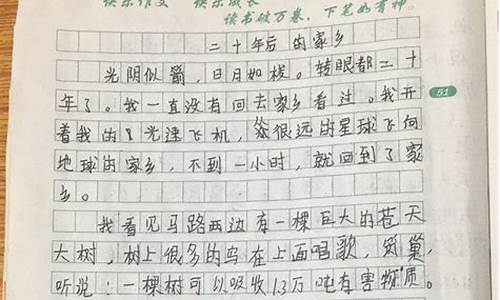 快乐作文 快乐成长
读书破万卷，下笔如有神。
二十年后的家乡
光阴似箭，日月如梭。转眼都二十
年了。我一直没有回去家乡看过。我开
着我的光速飞机，从很远的星球飞向
地球的家乡，不到一小时，就回到了家
乡。
我看见马路两边有一棵巨大的苍天
大树，树上很多的鸟在上面唱歌，筑巢，
听说：一棵树可以吸收13万吨有害物质。
51